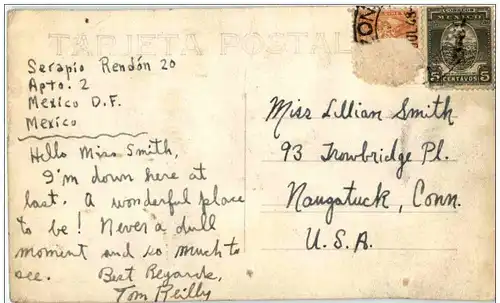 TARJETA POSTAL
Serapio Rendón 20
Apto. 2
Mexico D.F.
Mexico
Hello Miss Smith,
I'm down here at
last. A wonderful place
to be! Never a dull
moment and so much to
see. Best Regards,
Tom Reilly
MEXICO
5 CENTAVOS 5
Miss Lillian Smith
93 Trowbridge Pl.
Naugatuck, Conn.
U.S.A.